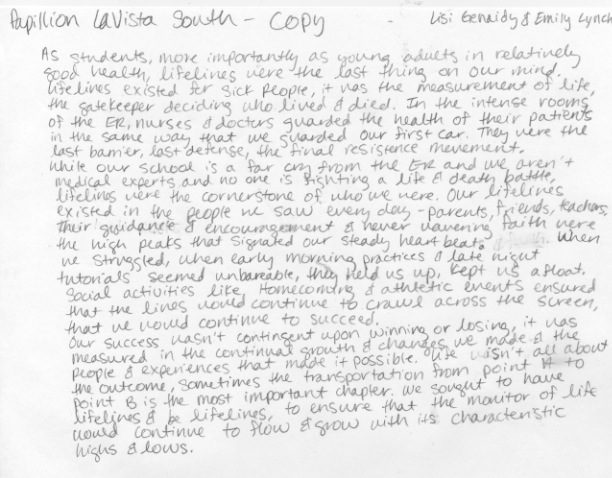 Papillion LaVista South - COPY - Lisi Genaidy & Emily Lynch
As students, more importantly as young adults in relatively
good health, lifelines were the last thing on our mind.
Lifelines existed for sick people, it was the measurement of life,
the gatekeeper deciding who lived & died. In the intense rooms
of the ER, nurses & doctors guarded the health of their patients
in the same way that we guarded our first car. They were the
last barrier, last defense, the final resistence movement.
While our school is a far cry from the ER and we aren't
medical experts and no one is fighting a life & death battle,
lifelines were the cornerstone of who we were. Our lifelines
existed in the people we saw every day - parents, friends, teachers,
their guidance & encouragement & never wavering faith were
the high peaks that signaled our steady heart beats. When
we struggled, when early morning practices & late night
tutorials seemed unbareable, they held us up, kept us afloat.
Social activities like Homecoming & athletic events ensured
that the lines would continue to crawl across the screen,
that we would continue to succeed.
Our success wasn't contingent upon winning or losing, it was
measured in the continual growth & changes we made & the
people & experiences that made it possible. Life wasn't all about
the outcome, sometimes the transportation from point A to
point B is the most important chapter. We sought to have
lifelines & be lifelines, to ensure that the monitor of life
would continue to flow & grow with its characteristic
highs & lows.